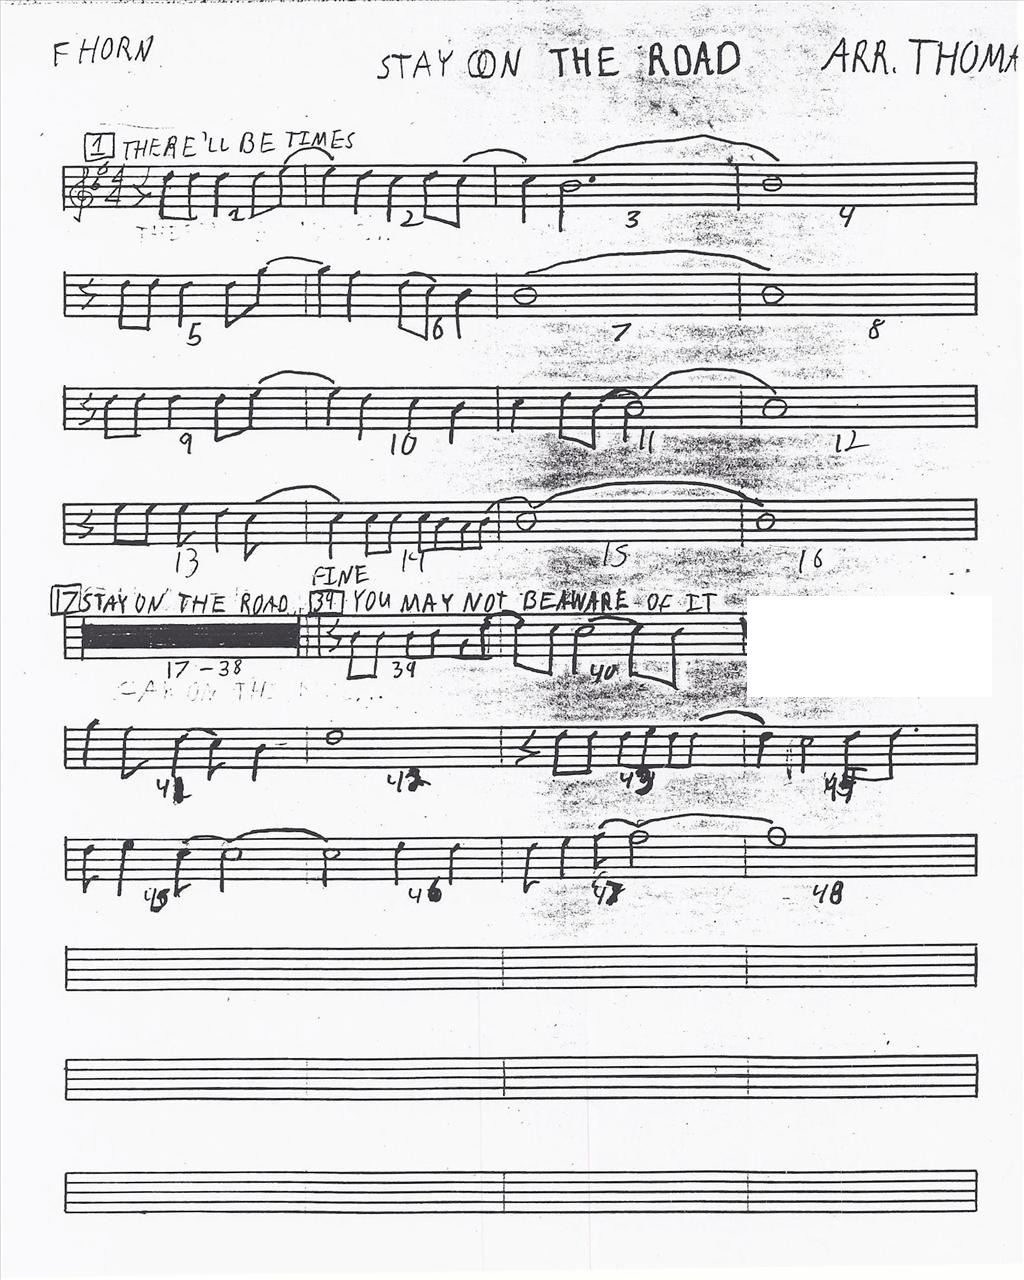 F HORN STAY ON THE ROAD ARR. THOMA
1 THERE'LL BE TIMES
4 4
1 2 3 4
5 6 7 8
9 10 11 12
13 14 15 16
FINE
17 STAY ON THE ROAD 39 YOU MAY NOT BE AWARE OF IT
17-38 39 40
41 42 43
46 47 48